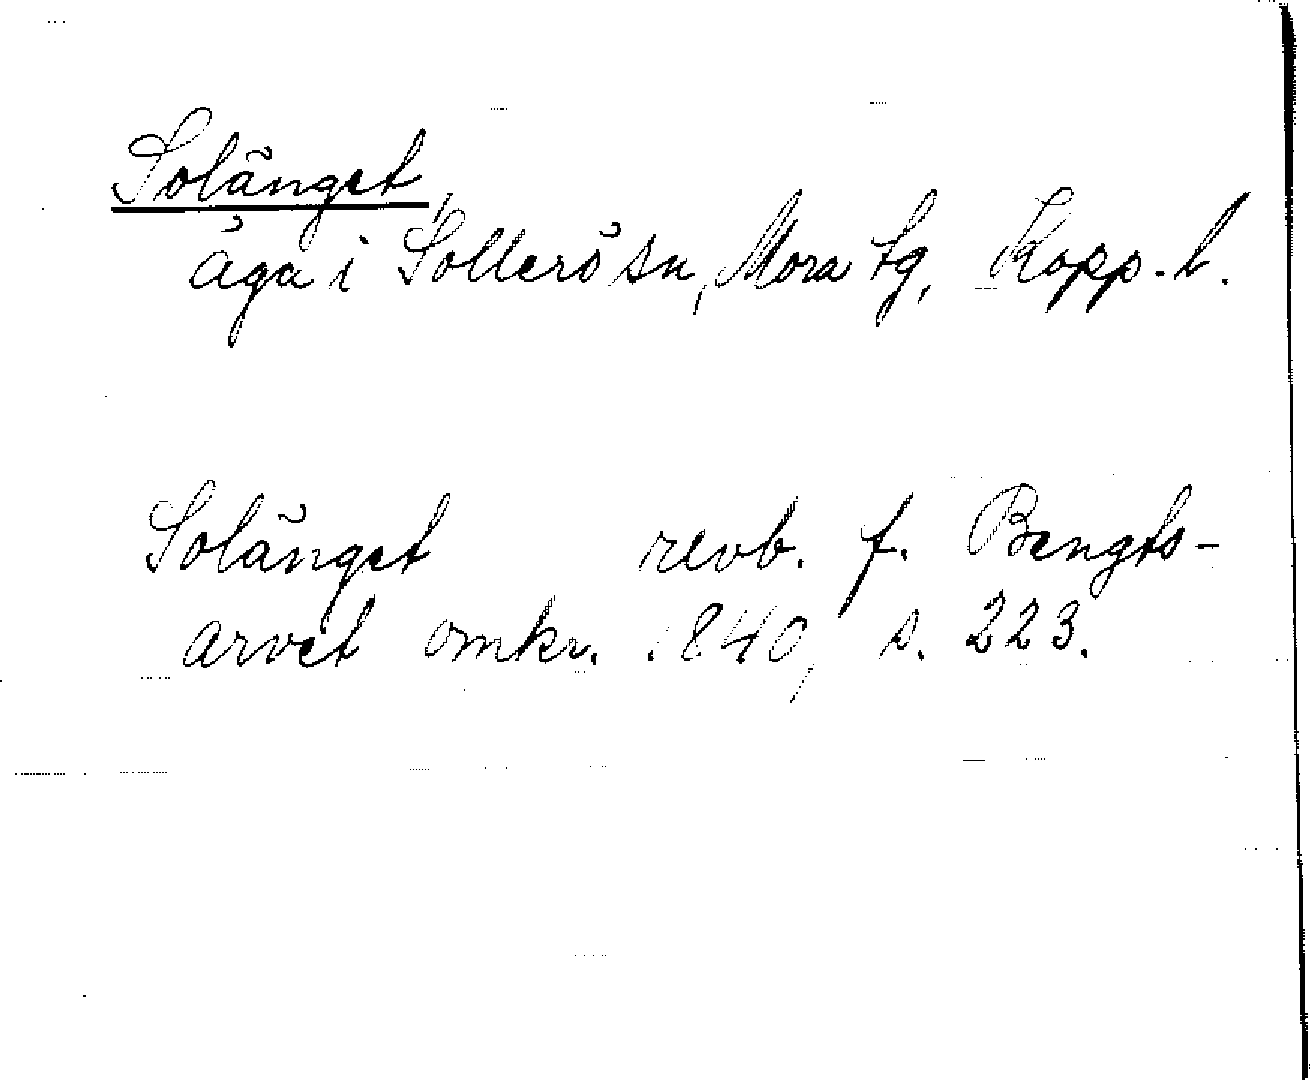 Solänget,
äga i Sollerö sn, Mora tg, Kopp. l.
Solänget revb. f. Bengts-
arvet omkr. 1840, s. 223.